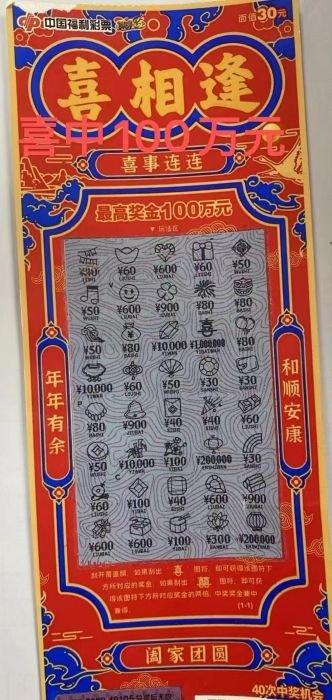 中国福利彩票 面值30元
喜相逢
喜中100万元
喜事连连
最高奖金100万元
▼玩法区
¥30 ¥60 ¥600 ¥60 ¥50
¥50 ¥600 ¥900 ¥80 ¥80
¥50 ¥80 ¥10,000 喜 ¥1,000,000 ¥60
¥10,000 ¥60 ¥50 ¥30 ¥30
¥80 ¥900 ¥40 ¥40 ¥60
¥50 ¥10,000 ¥100 ¥200,000 ¥30
¥60 ¥100 ¥40 ¥600 ¥900
¥600 ¥600 ¥100 ¥300 ¥200,000
年年有余
和顺安康
刮开覆盖膜,如果刮出 喜 图符,即可获得该图符下
方所对应的奖金;如果刮出 囍 图符,即可获
得该图符下方所对应奖金的两倍。中奖奖金兼中
兼得。
(1-1)
阖家团圆
40次中奖机